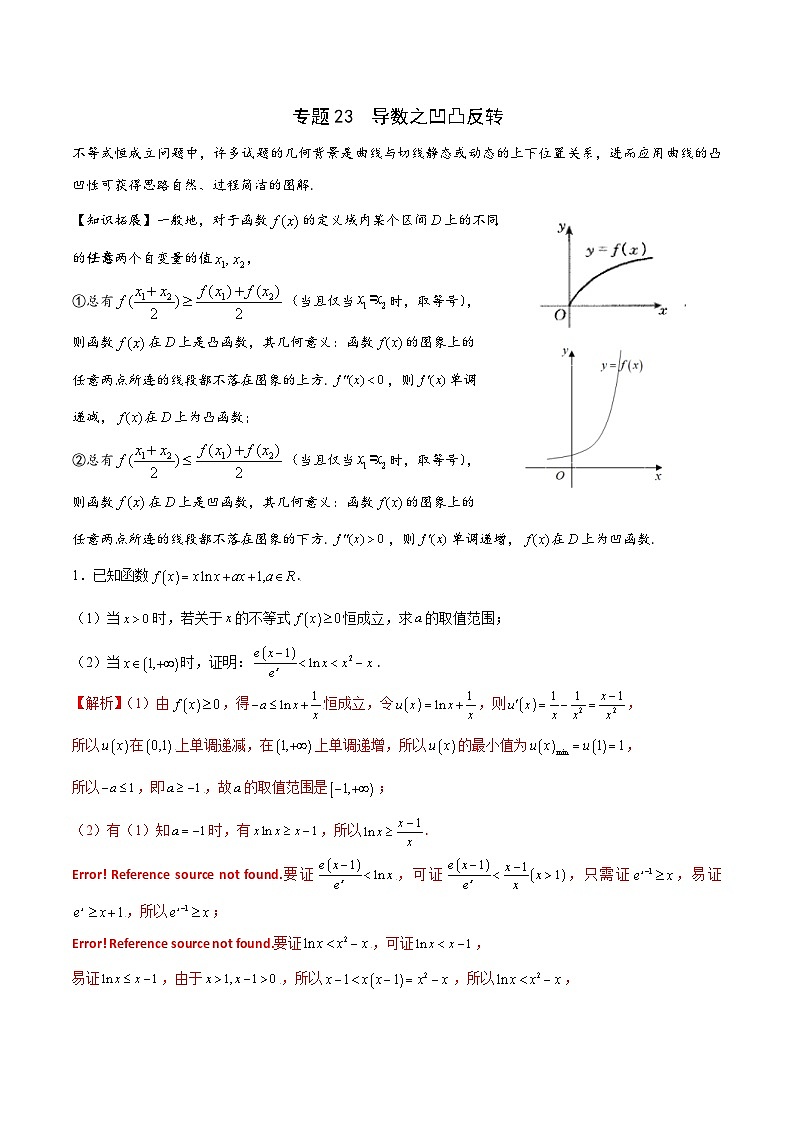 专题23 导数之凹凸反转
不等式恒成立问题中，许多试题的几何背景是曲线与切线静态或动态的上下位置关系，进而应用曲线的凸
凹性可获得思路自然、过程简洁的图解.
【知识拓展】一般地，对于函数 f(x) 的定义域内某个区间 D 上的不同
的任意两个自变量的值 x₁, x₂，
①总有 f((x₁+x₂)/2) ≥ (f(x₁)+f(x₂))/2（当且仅当 x₁=x₂ 时，取等号），
则函数 f(x) 在 D 上是凸函数，其几何意义：函数 f(x) 的图象上的
任意两点所连的线段都不落在图象的上方. f″(x)<0，则 f′(x) 单调
递减， f(x) 在 D 上为凸函数；
②总有 f((x₁+x₂)/2) ≤ (f(x₁)+f(x₂))/2（当且仅当 x₁=x₂ 时，取等号），
则函数 f(x) 在 D 上是凹函数，其几何意义：函数 f(x) 的图象上的
任意两点所连的线段都不落在图象的下方. f″(x)>0，则 f′(x) 单调递增， f(x) 在 D 上为凹函数.
y
y=f(x)
O
x
y
y=f(x)
O
x
1．已知函数 f(x)=xlnx+ax+1,a∈R.
（1）当 x>0 时，若关于 x 的不等式 f(x)≥0 恒成立，求 a 的取值范围；
（2）当 x∈(1,+∞) 时，证明：e(x−1)/eˣ<lnx<x²−x．
【解析】（1）由 f(x)≥0，得 −a≤lnx+1/x 恒成立，令 u(x)=lnx+1/x，则 u′(x)=1/x−1/x²=(x−1)/x²，
所以 u(x) 在 (0,1) 上单调递减，在 (1,+∞) 上单调递增，所以 u(x) 的最小值为 u(x)min=u(1)=1，
所以 −a≤1，即 a≥−1，故 a 的取值范围是 [−1,+∞)；
（2）有（1）知 a=−1 时，有 xlnx≥x−1，所以 lnx≥(x−1)/x．
Error! Reference source not found.要证 e(x−1)/eˣ<lnx，可证 e(x−1)/eˣ<(x−1)/x(x>1)，只需证 eˣ⁻¹≥x，易证
eˣ≥x+1，所以 eˣ⁻¹≥x；
Error! Reference source not found.要证 lnx<x²−x，可证 lnx<x−1，
易证 lnx≤x−1，由于 x>1,x−1>0，所以 x−1<x(x−1)=x²−x，所以 lnx<x²−x，